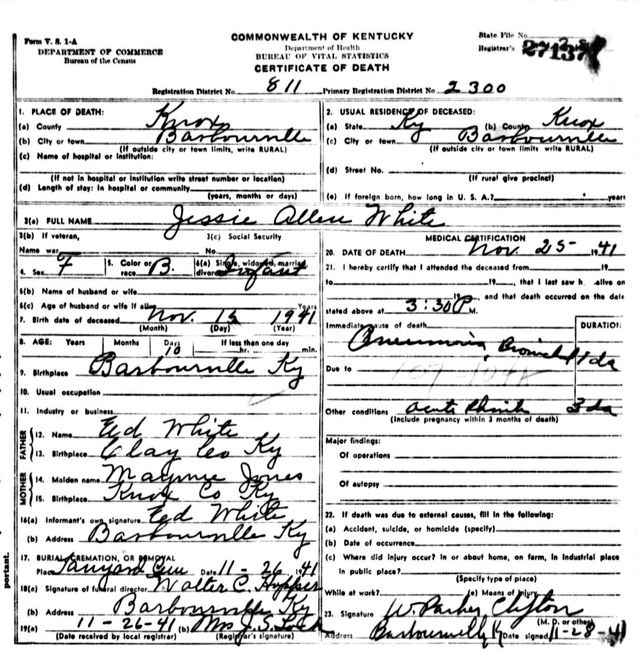 Form V. S. 1-A
DEPARTMENT OF COMMERCE
Bureau of the Census
COMMONWEALTH OF KENTUCKY
Department of Health
BUREAU OF VITAL STATISTICS
CERTIFICATE OF DEATH
State File No.
Registrar's
Registration District No. 811 Primary Registration District No. 2300
1. PLACE OF DEATH:
(a) County Knox
(b) City or town Barbourville
(If outside city or town limits, write RURAL)
(c) Name of hospital or institution:
(If not in hospital or institution write street number or location)
(d) Length of stay: In hospital or community
(years, months or days)
2. USUAL RESIDENCE OF DECEASED:
(a) State Ky (b) County Knox
(c) City or town Barbourville
(If outside city or town limits, write RURAL)
(d) Street No.
(If rural give precinct)
(e) If foreign born, how long in U. S. A.? years
3(a) FULL NAME Jessie Allen White
3(b) If veteran, 3(c) Social Security
Name war No.
4. Sex F 5. Color or race B. 6(a) Single, widowed, married, divorced Infant
6(b) Name of husband or wife
6(c) Age of husband or wife if alive Years
7. Birth date of deceased Nov. 15 1941
(Month) (Day) (Year)
8. AGE: Years Months Days If less than one day
10 hr. min.
9. Birthplace Barbourville Ky
10. Usual occupation
11. Industry or business
FATHER
12. Name Ed White
13. Birthplace Clay Co Ky
MOTHER
14. Maiden name Maymye Jones
15. Birthplace Knox Co Ky
16(a) Informant's own signature Ed White
(b) Address Barbourville Ky
17. BURIAL, CREMATION, OR REMOVAL
Place Date 11-26 1941
18(a) Signature of funeral director Walter C. Hopper
(b) Address Barbourville Ky
19(a) 11-26-41 (b) Mrs J. S.
(Date received by local registrar) (Registrar's signature)
MEDICAL CERTIFICATION
20. DATE OF DEATH Nov. 25- 1941
21. I hereby certify that I attended the deceased from 19
to 19, that I last saw h alive on
19, and that death occurred on the date
stated above at 3:30 P. M.
Immediate cause of death DURATION
Pneumonia, Bronchial 1 da
Due to
Other conditions acute 3 da
(Include pregnancy within 3 months of death)
Major findings:
Of operations
Of autopsy
22. If death was due to external causes, fill in the following:
(a) Accident, suicide, or homicide (specify)
(b) Date of occurrence
(c) Where did injury occur? In or about home, on farm, in industrial place
in public place?
(Specify type of place)
While at work? (e) Means of injury
23. Signature W. Parker Clifton
(M. D. or other)
Address Barbourville Ky Date signed 11-28-41
portant.